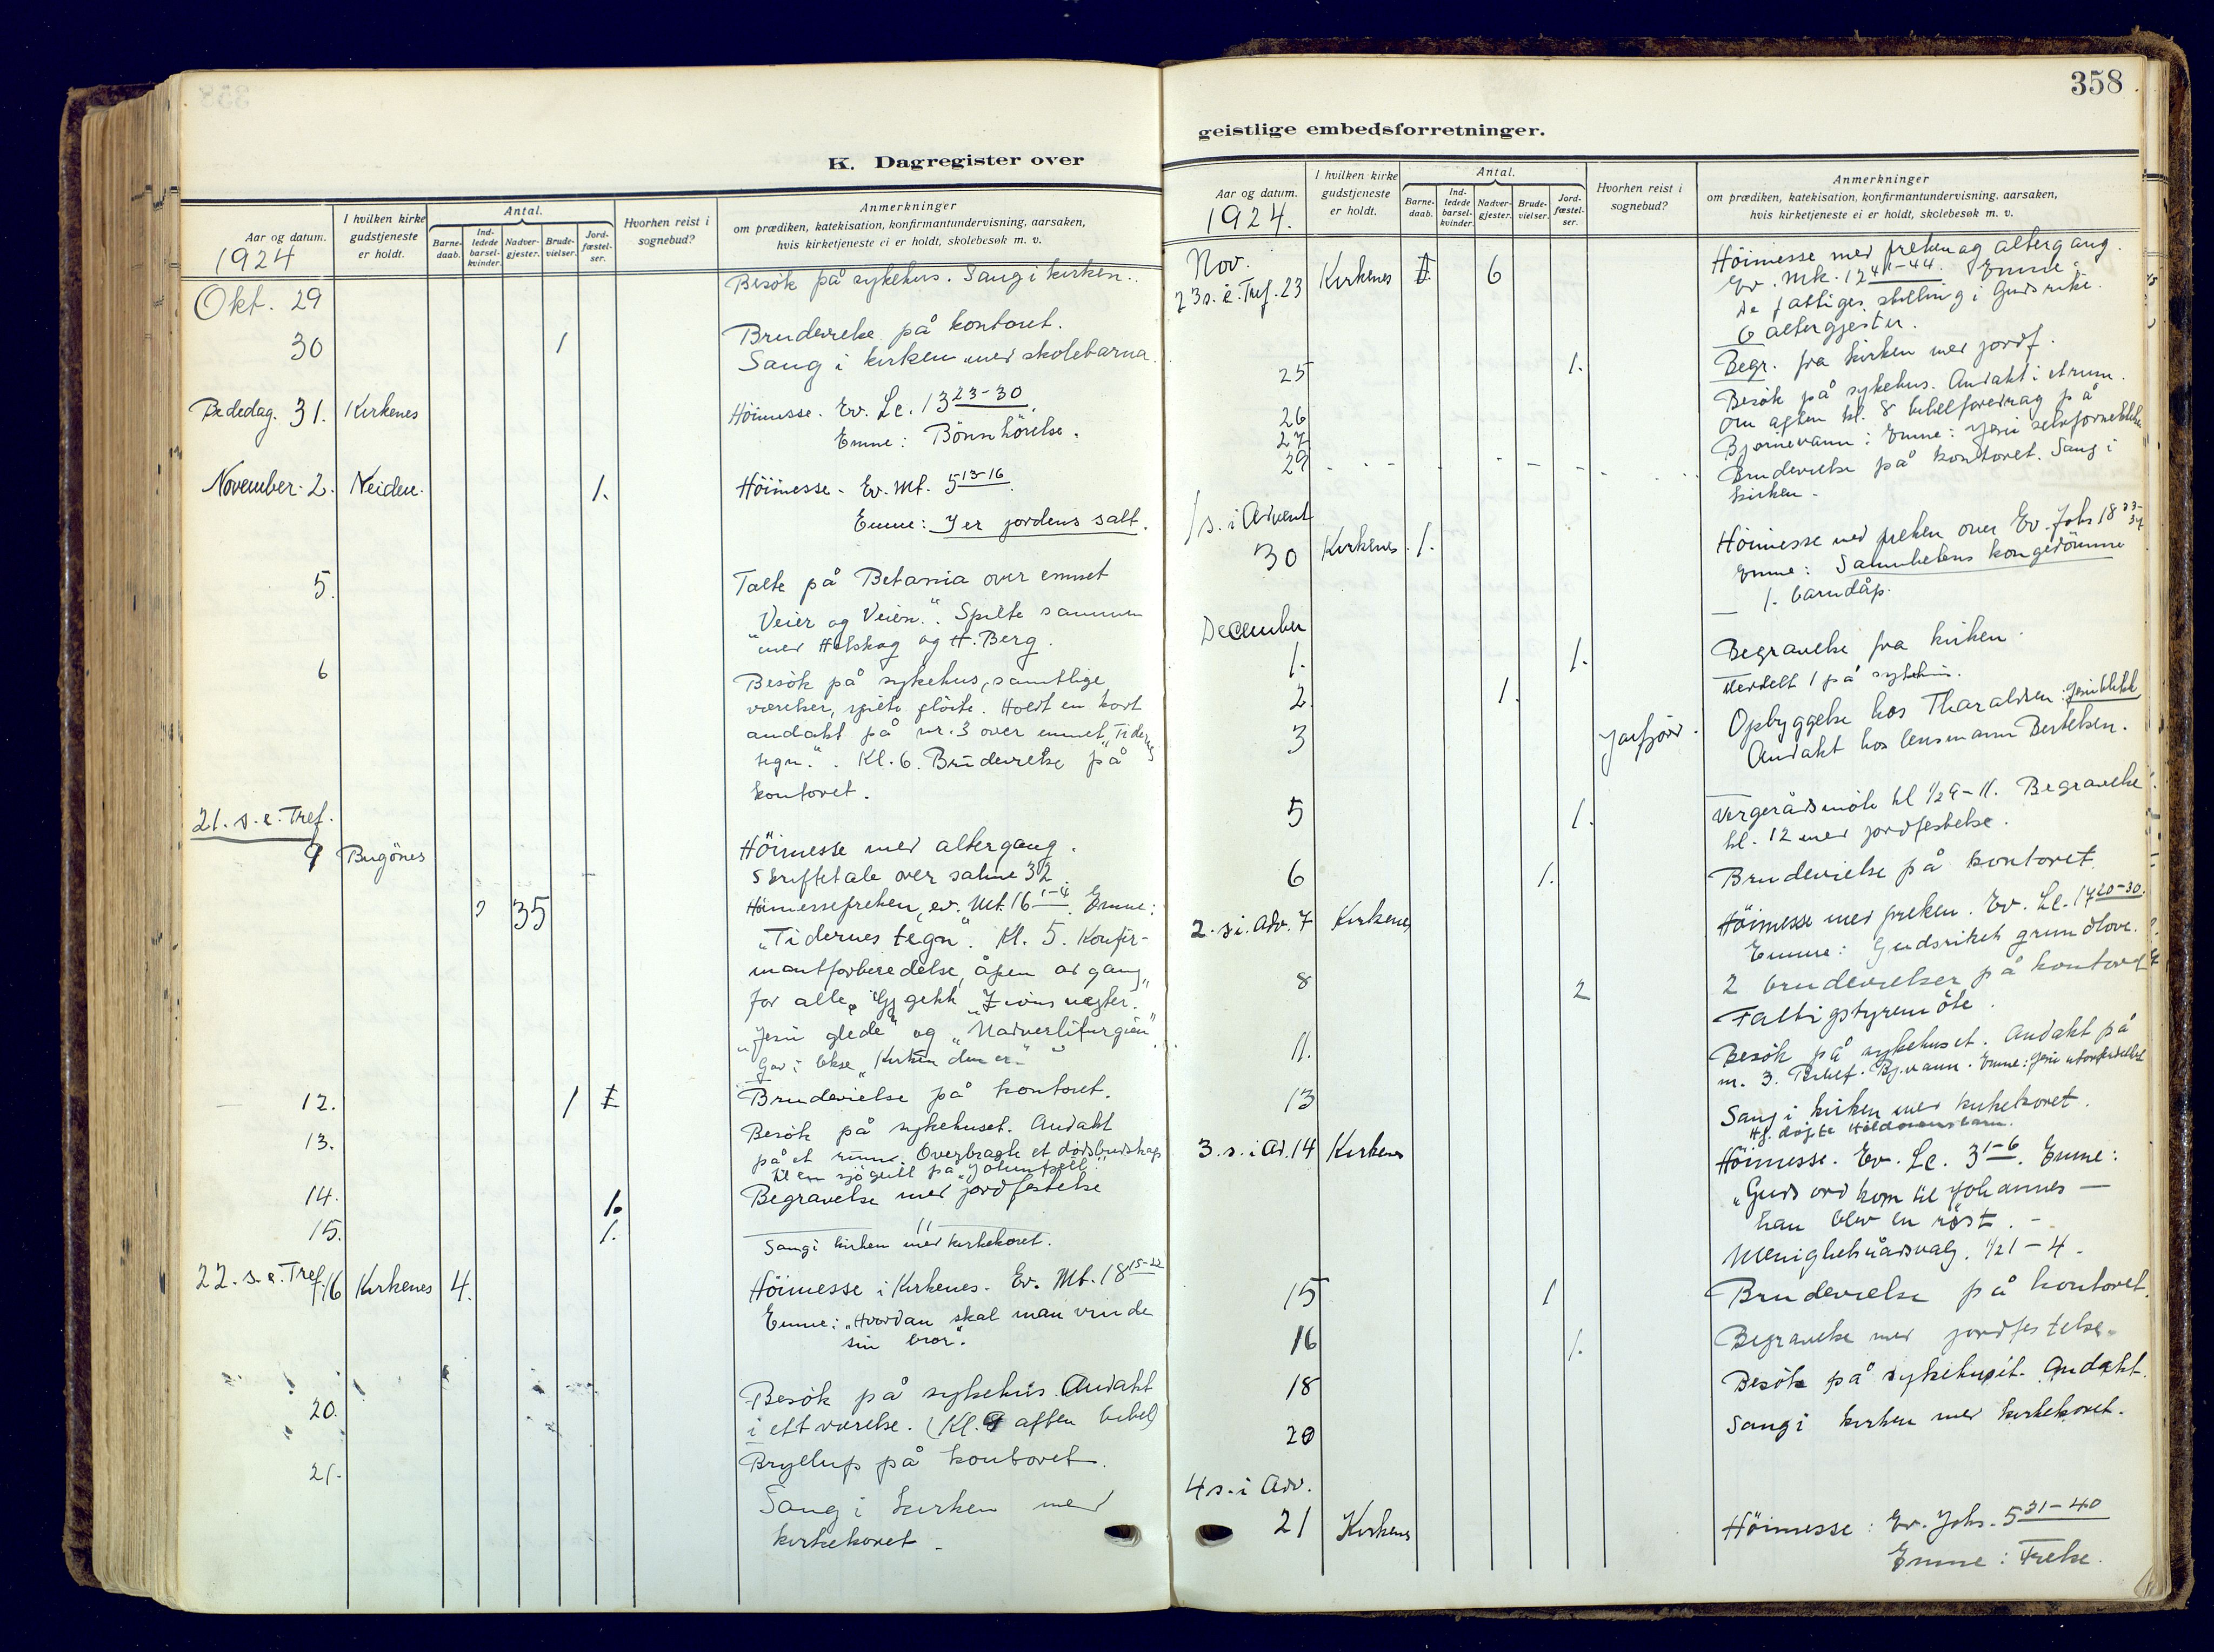 358
K. Dagregister over
geistlige embedsforretninger.
Aar og datum.
1924
I hvilken kirke gudstjeneste er holdt.
Antal.
Barne-daab.
Ind-ledede barsel-kvinder.
Nadver-gjester.
Brude-vielser.
Jord-fæstel-ser.
Hvorhen reist i sognebud?
Anmerkninger
om prædiken, katekisation, konfirmantundervisning, aarsaken,
hvis kirketjeneste ei er holdt, skolebesøk m. v.
Okt. 29 Besök på sykehus. Sang i kirken.
30 1 Brudevielse på kontoret.
Sang i kirken med skolebarna.
Bededag. 31. Kirkenes Höimesse. Ev. Lc. 13 23-30.
Emne: Bönnhörelse.
November. 2. Neiden. 1. Höimesse. Ev. Mt. 5 13-16
Emne: I er jordens salt.
5. Talte på Betania over emnet
"Veier og Veien". Spilte sammen
med Helskog og H. Berg.
6 Besök på sykehus, samtlige
værelser, spilte flöite. Holdt en kort
andakt på nr. 3 over emnet "Tidernes
tegn". Kl. 6. Brudevielse på
kontoret.
21. s. e. Tref.
9 Bugönes Höimesse med altergang.
Skriftetale over salme 32.
? 35 Höimessepreken, ev. Mt. 16 1-4. Emne:
"Tidernes tegn". Kl. 5. Konfir-
mantforberedelse, åpen adgang
for alle. Gj.gikk "Zions vegter"
"Jesu glede" og "Nadverliturgien".
"Kirken den er"
12. 1 1 Brudevielse på kontoret.
13. Besök på sykehuset. Andakt
på et rum. Overbragte et dödsbudskap
til en sjögutt på "Jotunfjell".
14. 1. Begravelse med jordfestelse
15. 1. — " —
Sang i kirken med kirkekoret.
22. s. e. Tref. 16 Kirkenes 4. Höimesse i Kirkenes. Ev. Mt. 18 15-22
Emne: "Hvordan skal man vinde
sin bror".
20. Besök på sykehus. Andakt
i ett værelse. (Kl. 8 aften bibel)
21. Bryllup på kontoret.
Sang i kirken med
kirkekoret.
Aar og datum.
1924.
I hvilken kirke gudstjeneste er holdt.
Antal.
Barne-daab.
Ind-ledede barsel-kvinder.
Nadver-gjester.
Brude-vielser.
Jord-fæstel-ser.
Hvorhen reist i sognebud?
Anmerkninger
om prædiken, katekisation, konfirmantundervisning, aarsaken,
hvis kirketjeneste ei er holdt, skolebesøk m. v.
Nov.
23 s. e. Tref. 23 Kirkenes 6 Höimesse med preken og altergang.
Ev. Mk. 12 41-44. Emne:
De fattiges stilling i Guds rike.
6 altergjester.
25 1. Begr. fra kirken med jordf.
26 Besök på sykehus. Andakt i et rum.
27 Om aften kl. 8 bibelforedrag på
Bjørnevann: Emne: Jesu selvfornektelse
29 Brudevielse på kontoret. Sang i
kirken.
1 s. i Advent
30 Kirkenes 1. Höimesse med preken over Ev. Johs 18 33-37
Emne: Sannhetens kongedömme
— 1. barndåp.
December
1. 1. Begravelse fra kirken.
2. 1. Meddelt 1 på sykehus.
3 Jarfjord. Opbyggelse hos Tharaldsen. Jesu blikk
Andakt hos lensmann Bertelsen.
5 1. Vergerådsmöte kl 1/2 9-11. Begravelse
kl. 12 med jordfestelse.
6 1. Brudevielse på kontoret.
2. s. i. Adv. 7 Kirkenes Höimesse med preken. Ev. Lc. 17 20-30.
Emne: Gudsrikets grundlove.
8 2 2 brudevielser på kontoret
Fattigstyremöte.
11. Besök på sykehuset. Andakt på
nr. 3. Bibelf. Bj.vann. Emne: Jesu
13 Sang i kirken med kirkekoret.
3. s. i Ad. 14 Kirkenes Höimesse. Ev. Lc. 3 1-6. Emne:
"Guds ord kom til Johannes —
han blev en röst. -
Menighetsrådsvalg. 1/2 1 - 4.
15 1 Brudevielse på kontoret.
16 1. Begravelse med jordfestelse.
18 Besök på sykehuset. Andakt.
20 Sang i kirken med kirkekoret.
4 s. i Adv.
21 Kirkenes Höimesse: Ev. Johs. 5 31-40
Emne: Frelse.